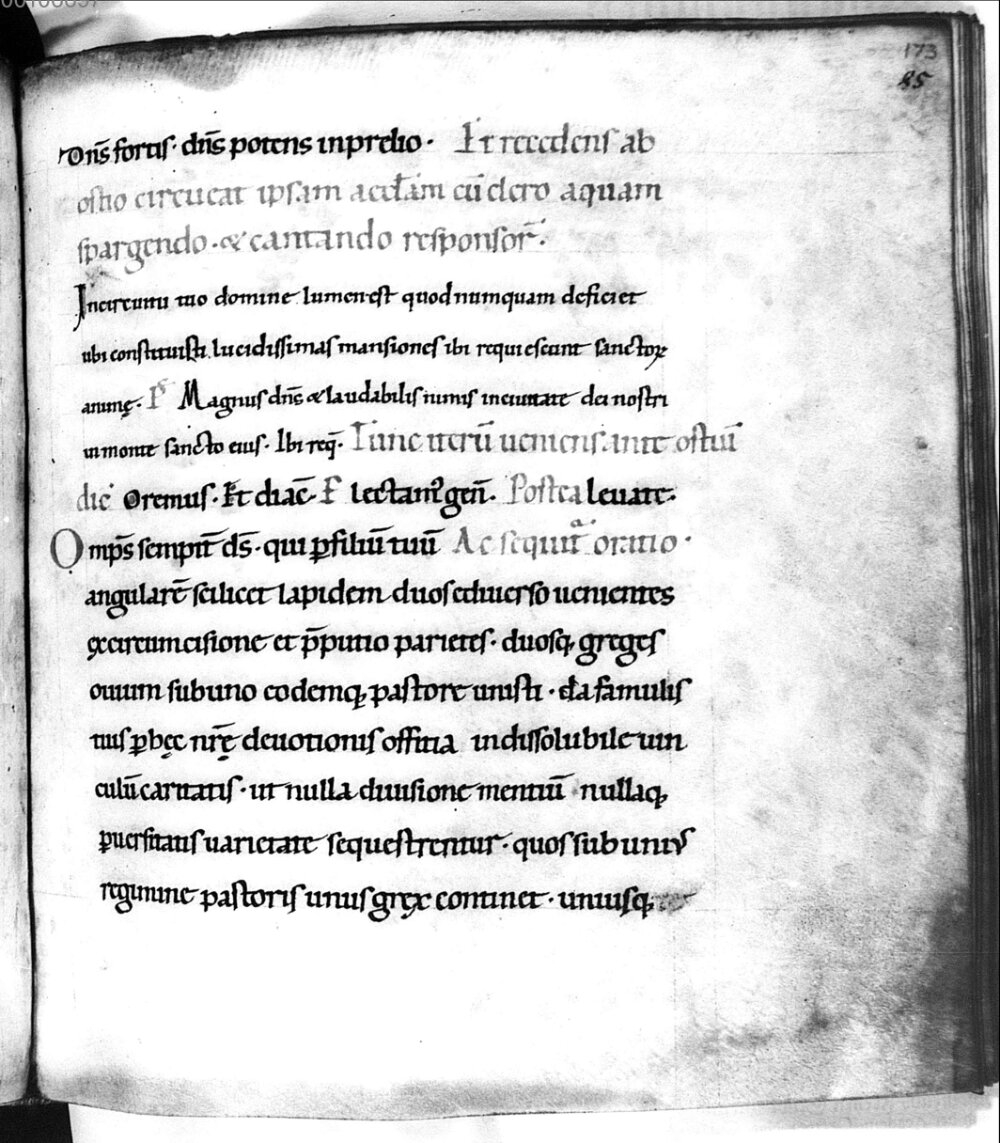 00100037
173
85
Dn̄s fortis· dn̄s potens in prelio· Et recedens ab
ostio circueat ipsam aecl̄am cū clero aquam
spargendo·& cantando responsor̄·
In circuitu tuo domine lumen est quod numquam deficiet
ubi constituisti lucidissimas mansiones ibi requiescunt sanctoꝝ
animę· Magnus dn̄s & laudabilis nimis in ciuitate dei nostri
in monte sancto eius· Ibi req̄· Tunc iterū ueniens ante ostiū
dic̄ Oremus· Et diac̄· F lectam᷒ gen̄· Postea leuate·
Omp̄s sempit̄ ds̄· qui ꝑ filiū tuū Ac sequit̄ oratio·
angularē scilicet lapidem duos ediuerso uenientes
ex circumcisione et p̄putio parietes· duosq; greges
ouium sub uno eodemq; pastore unisti· da famulis
tuis ꝑ hęc nr̄ę deuotionis officia indissolubile uin
culū caritatis· ut nulla diuisione mentiū nullaq;
ꝑuersitatis uarietate sequestrentur· quos sub unius
regimine pastoris unus grex continet· uniusq;